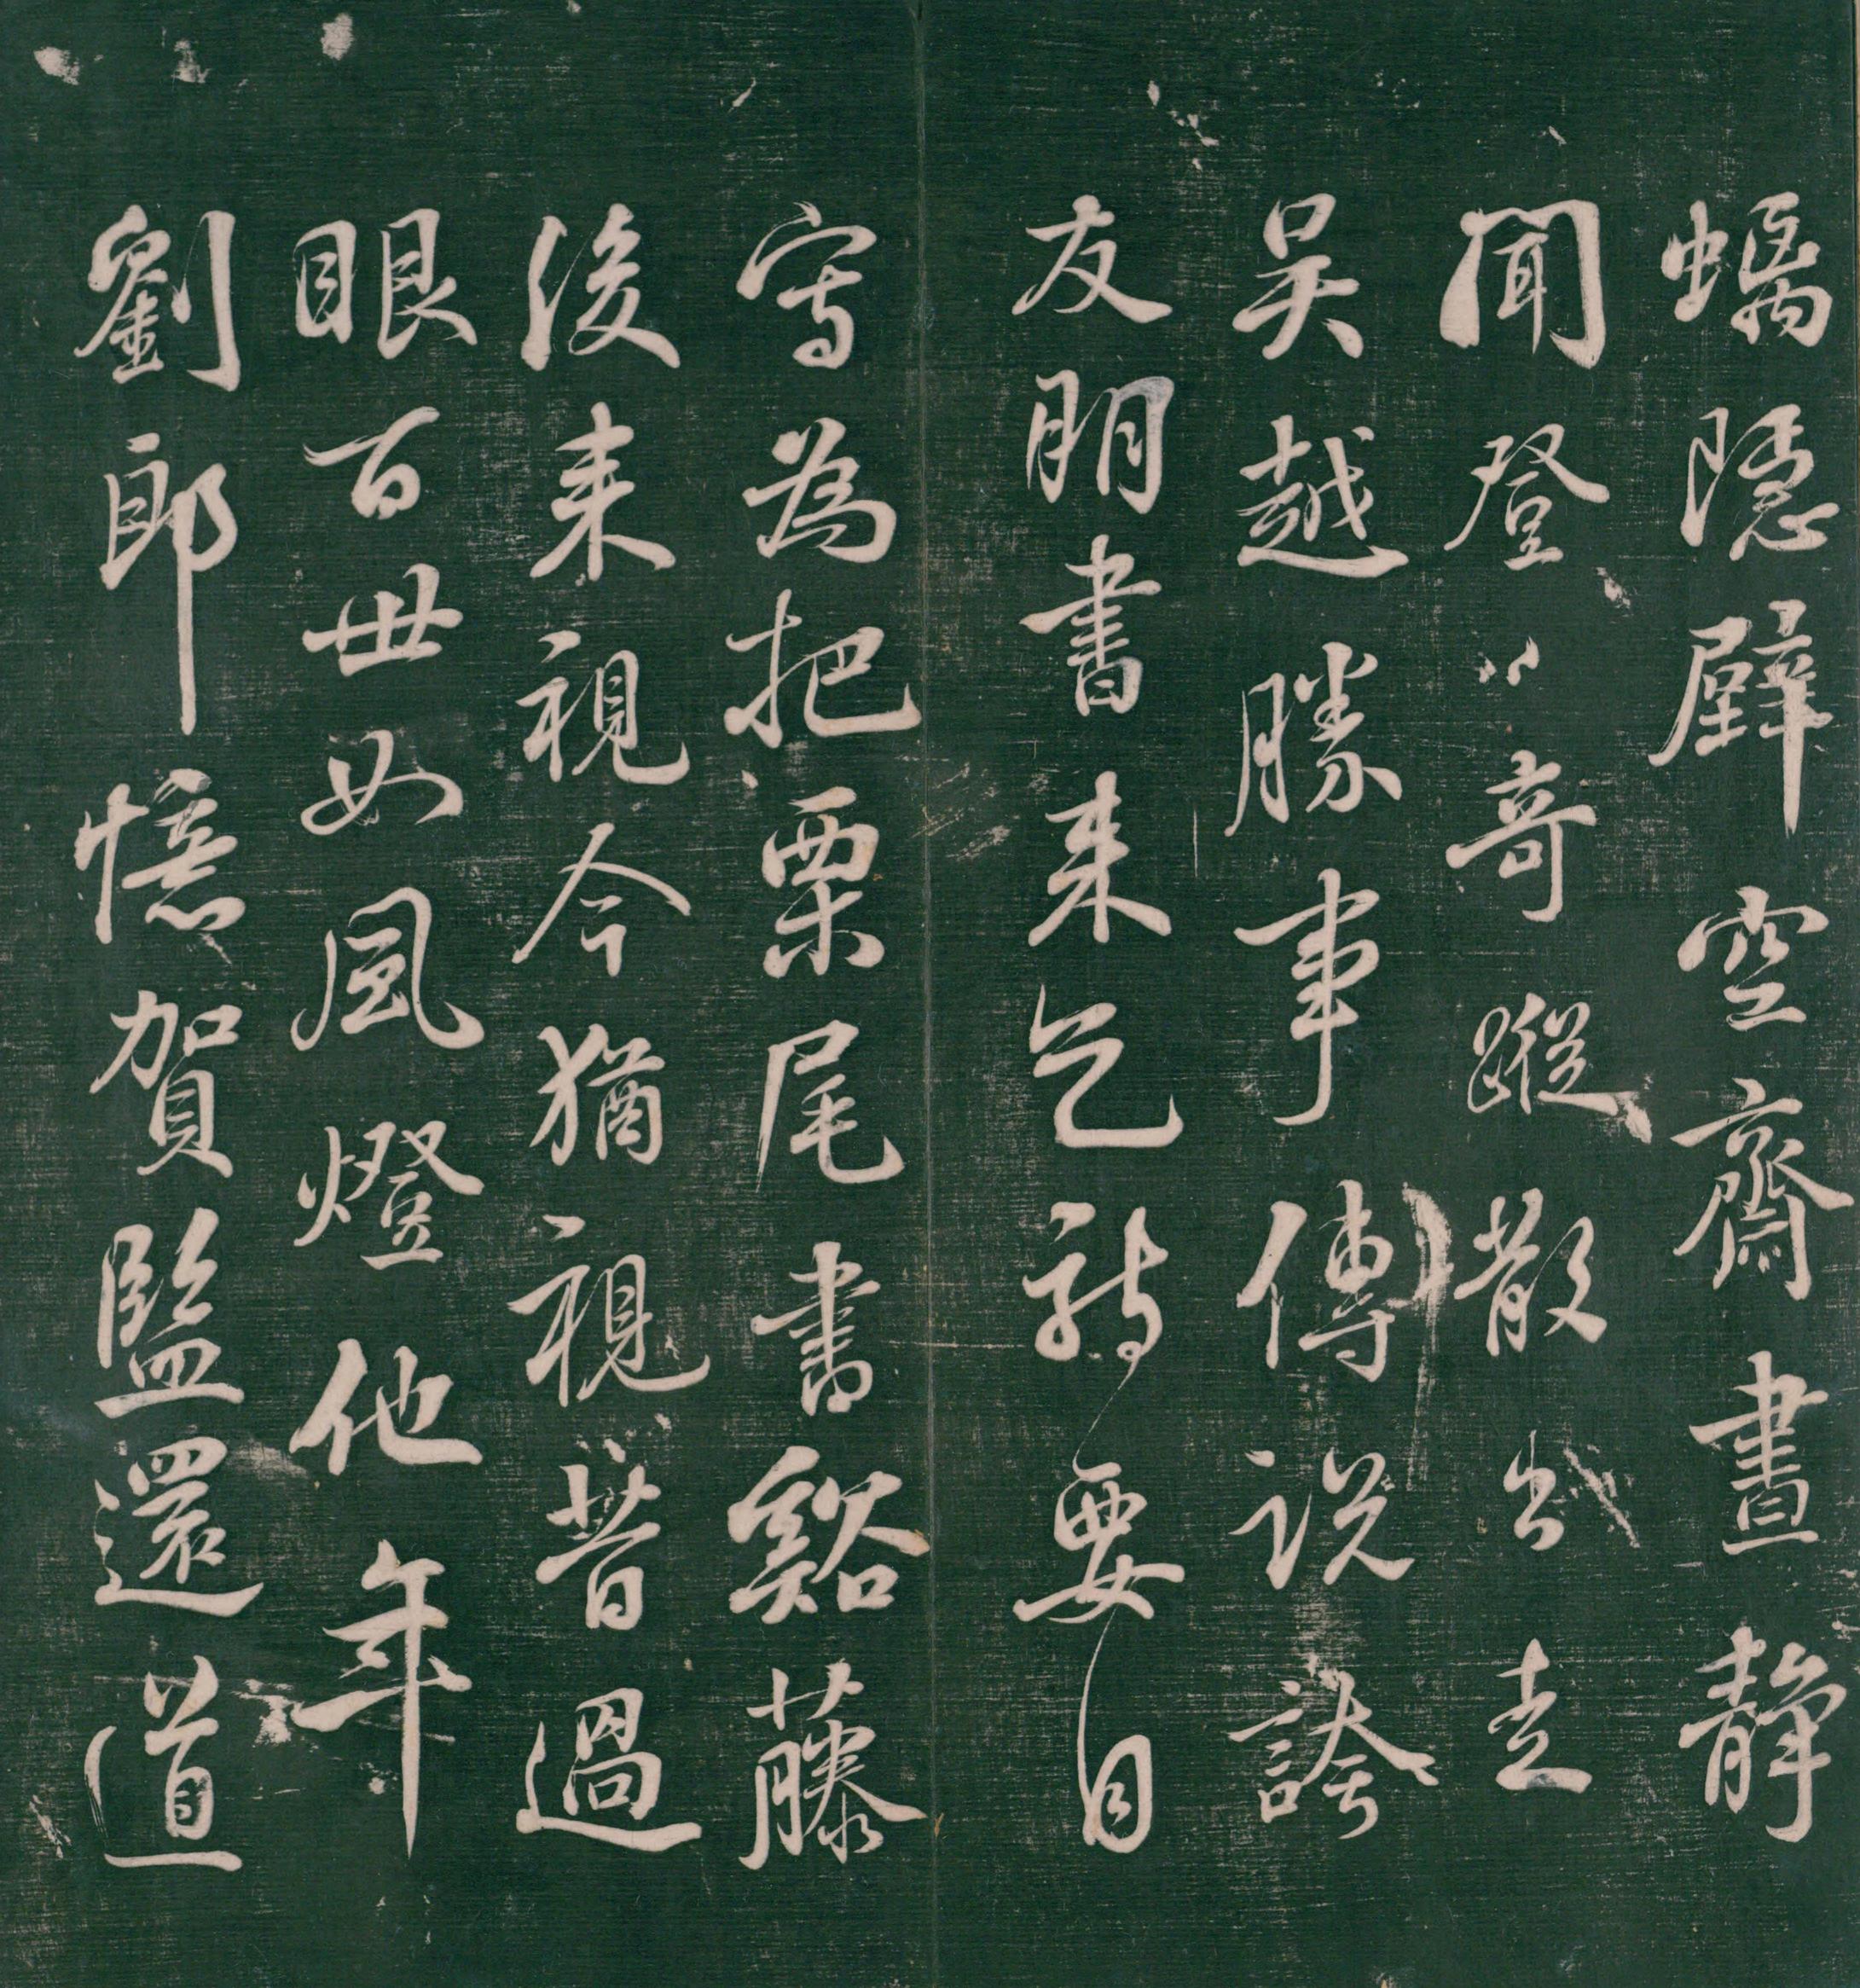 螭隱壁空齋晝靜
聞登〻奇蹤散出走
吳越勝事傳説誇
友朋書来乞詩要自
寫為把栗尾書谿藤
後来視今猶視昔過
眼百世如風燈他年
劉郎憶賀監還道